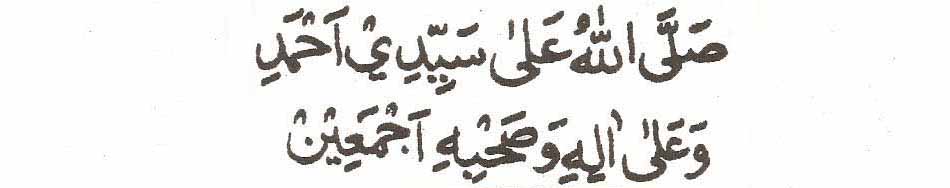 صَلَّى اللهُ عَلىٰ سَيِّدِيْ اَحْمَدِ
وَعَلىٰ اٰلِهِ وَصَحْبِهِ اَجْمَعِيْنَ